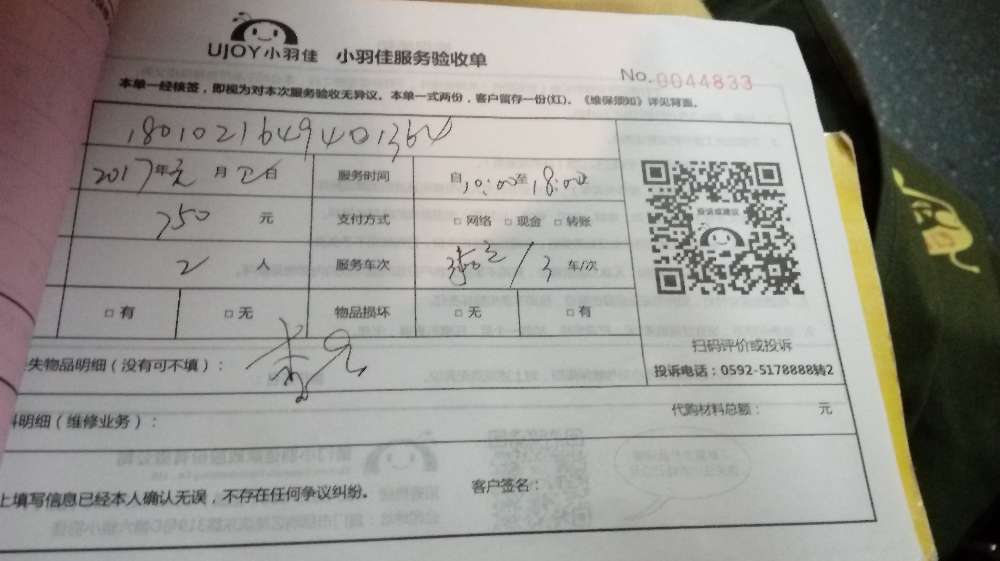 UJOY小羽佳 小羽佳服务验收单
No.0044833
本单一经核签，即视为对本次服务验收无异议。本单一式两份，客户留存一份(红)。《维保须知》详见背面。
1801021649401364
2017年元月 日 服务时间 自10:00至18:00
750元 支付方式 □网络 □现金 □转账
投诉或建议
2人 服务车次 /3 车/次
□有 □无 物品损坏 □无 □有
扫码评价或投诉
失物品明细（没有可不填）：
投诉电话：0592-5178888转2
料明细（维修业务）：
代购材料总额： 元
上填写信息已经本人确认无误，不存在任何争议纠纷。
客户签名：